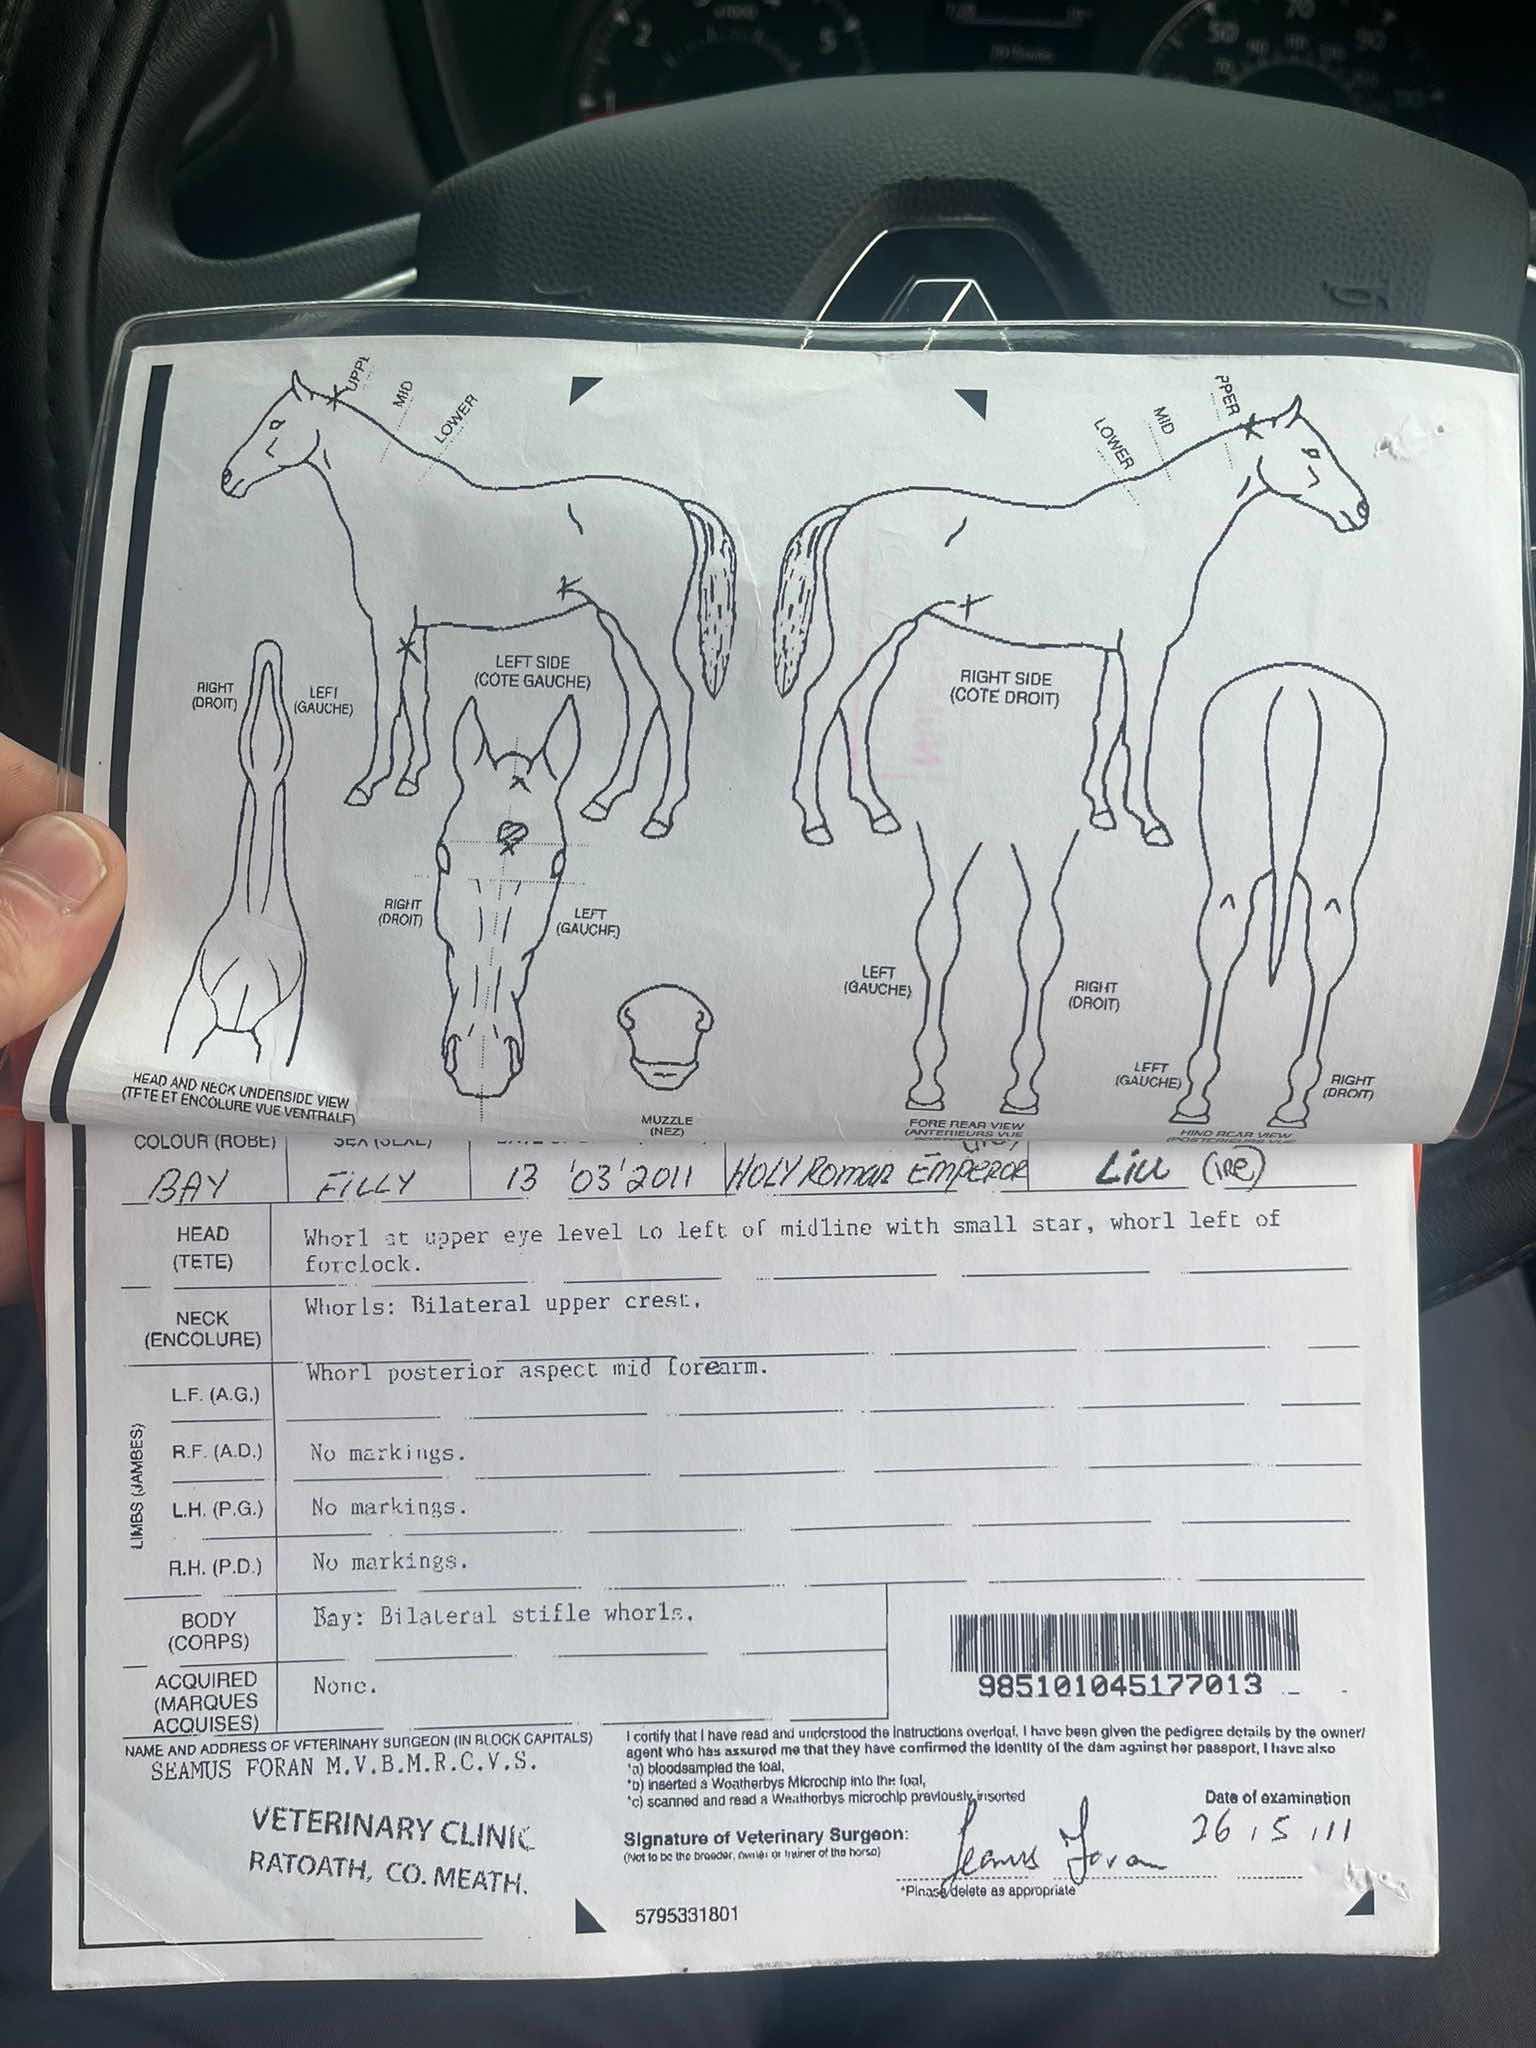 MID
LOWER
LOWER
MID
PPER
LEFT SIDE
(COTE GAUCHE)
RIGHT SIDE
(COTE DROIT)
RIGHT
(DROIT)
LEFT
(GAUCHE)
RIGHT
(DROIT)
LEFT
(GAUCHE)
LEFT
(GAUCHE)
RIGHT
(DROIT)
LEFT
(GAUCHE)
RIGHT
(DROIT)
HEAD AND NECK UNDERSIDE VIEW
(TETE ET ENCOLURE VUE VENTRALE)
MUZZLE
(NEZ)
FORE REAR VIEW
(ANTERIEURS VUE
HIND REAR VIEW
(POSTERIEURS VUE
COLOUR (ROBE) SEX (SEXE)
BAY FILLY 13 '03'2011 HOLY ROMAN EMPEROR LILL (IRE)
HEAD
(TETE)
Whorl at upper eye level to left of midline with small star, whorl left of
forclock.
NECK
(ENCOLURE)
Whorls: Bilateral upper crest.
LIMBS (JAMBES)
L.F. (A.G.) Whorl posterior aspect mid forearm.
R.F. (A.D.) No markings.
L.H. (P.G.) No markings.
R.H. (P.D.) No markings.
BODY
(CORPS)
Bay: Bilateral stifle whorls.
ACQUIRED
(MARQUES
ACQUISES)
None.
985101045177013
NAME AND ADDRESS OF VETERINARY SURGEON (IN BLOCK CAPITALS)
SEAMUS FORAN M.V.B.M.R.C.V.S.
VETERINARY CLINIC
RATOATH, CO. MEATH.
I certify that I have read and understood the instructions overleaf, I have been given the pedigree details by the owner/
agent who has assured me that they have confirmed the identity of the dam against her passport, I have also
*a) bloodsampled the foal,
*b) inserted a Weatherbys Microchip into the foal,
*c) scanned and read a Weatherbys microchip previously inserted
Date of examination
26.5.11
Signature of Veterinary Surgeon:
(Not to be the breeder, owner or trainer of the horse)
Seamus Foran
*Please delete as appropriate
5795331801